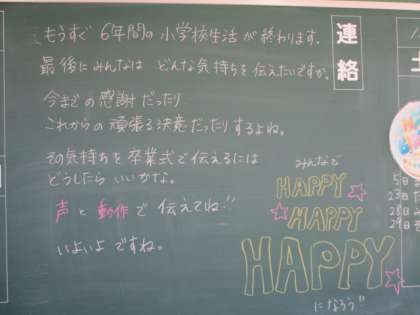 もうすぐ 6年間の 小学校生活 が 終わります。
最後にみんなは どんな気持ちを伝えたいですか。
今までの感謝だったり
これからの頑張る決意だったりするよね。
その気持ちを 卒業式で伝えるには
どうしたら いいかな。
声 と 動作 で 伝えてね!!
いよいよ ですね。
連絡
みんなで
HAPPY
HAPPY
HAPPY
になろう!!
土